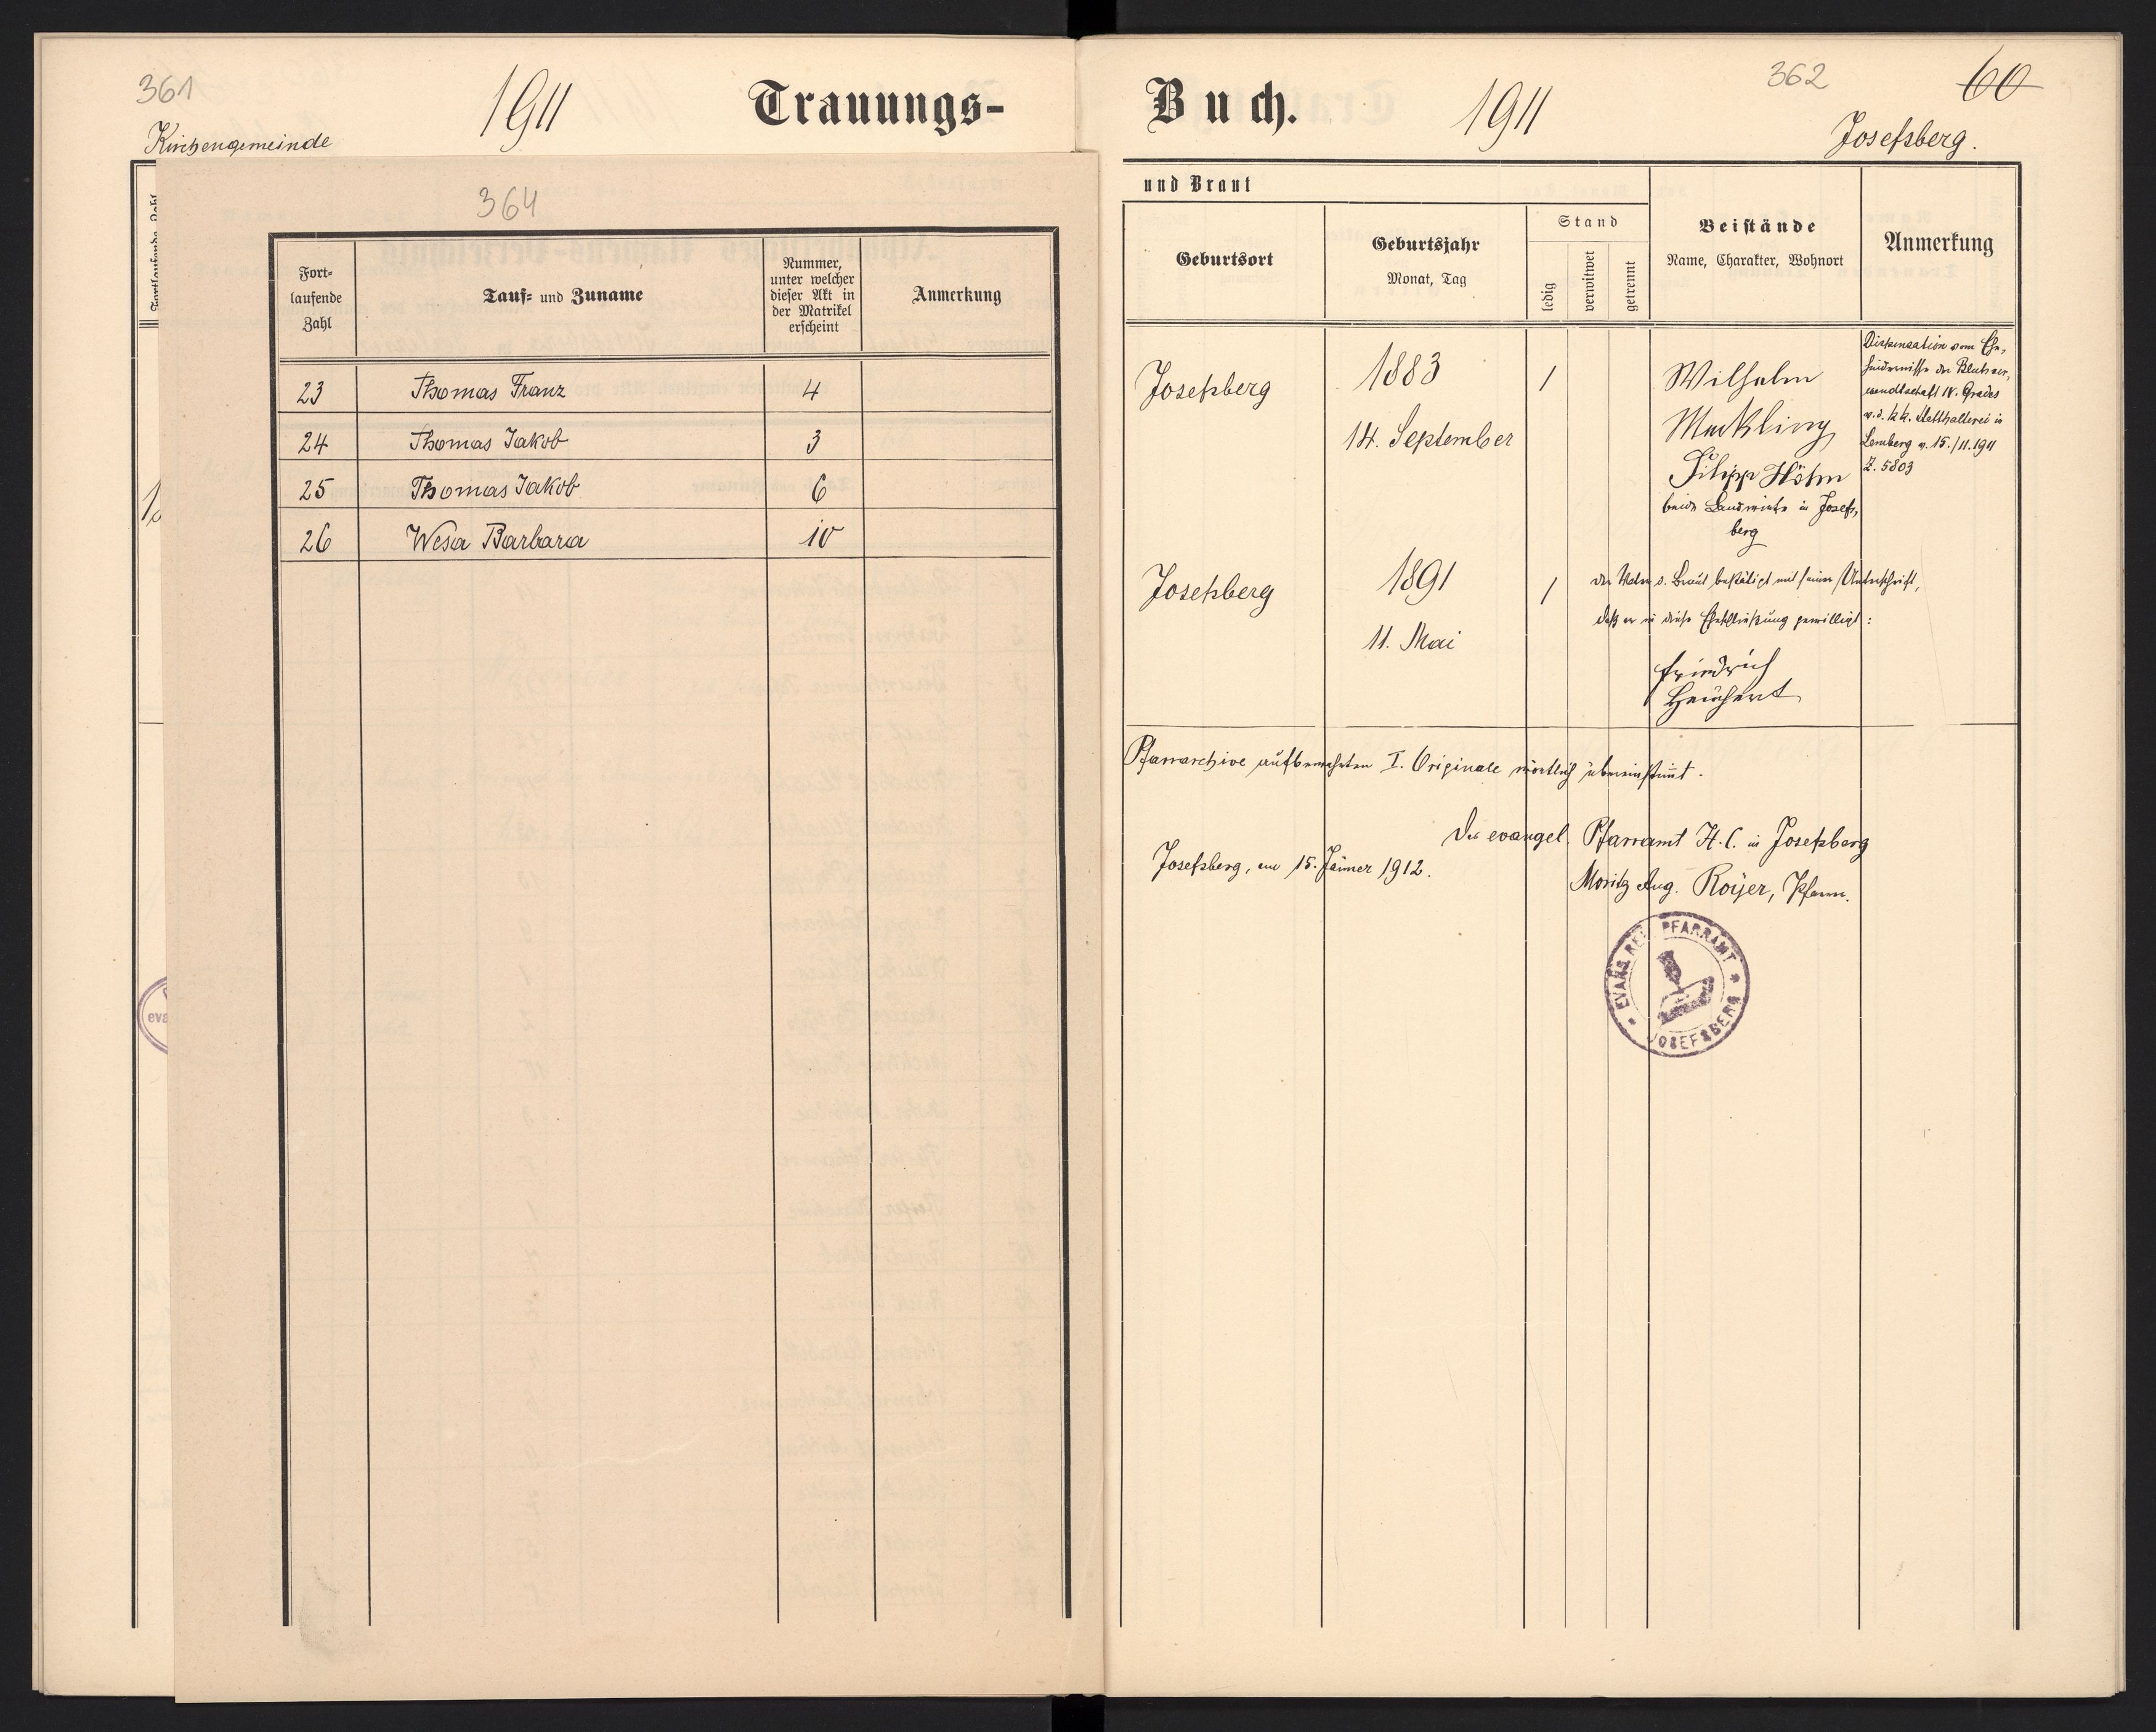 361
1911
Trauungs-
Kirchengemeinde
364
Fort-
laufende
Zahl
Tauf- und Zuname
Nummer,
unter welcher
dieser Akt in
der Matrikel
erscheint
Anmerkung
23 Thomas Franz 4
24 Thomas Jakob 3
25 Thomas Jakob 6
26 Wesa Barbara 10
eva
Buch.
1911
362
60
Josefsberg.
und Braut
Geburtsort
Geburtsjahr
Monat, Tag
Stand
ledig
verwitwet
getrennt
Beistände
Name, Charakter, Wohnort
Anmerkung
Josefsberg
1883
14. September
1
Wilhelm
Mockling
Filipp Höhn
beide Landwirte in Josefs-
berg
Dispensation vom Ehe-
hindernisse der Blutsver-
wandtschaft IV. Grades
v. d. k.k. Statthalterei in
Lemberg v. 15./11.1911
Z. 5803
Josefsberg
1891
11. Mai
1
der Vater d. Braut bestätigt mit seiner Unterschrift,
daß er in diese Eheschließung gewilligt:
Friedrich
Heuchert
Pfarrarchive aufbewahrten I. Originale wörtlich übereinstimmt.
Das evangel. Pfarramt H. C. in Josefsberg
Josefsberg, am 15. Jänner 1912.
Moritz Aug. Royer, Pfarrer.
EVANG. REF. PFARRAMT
* JOSEFSBERG *